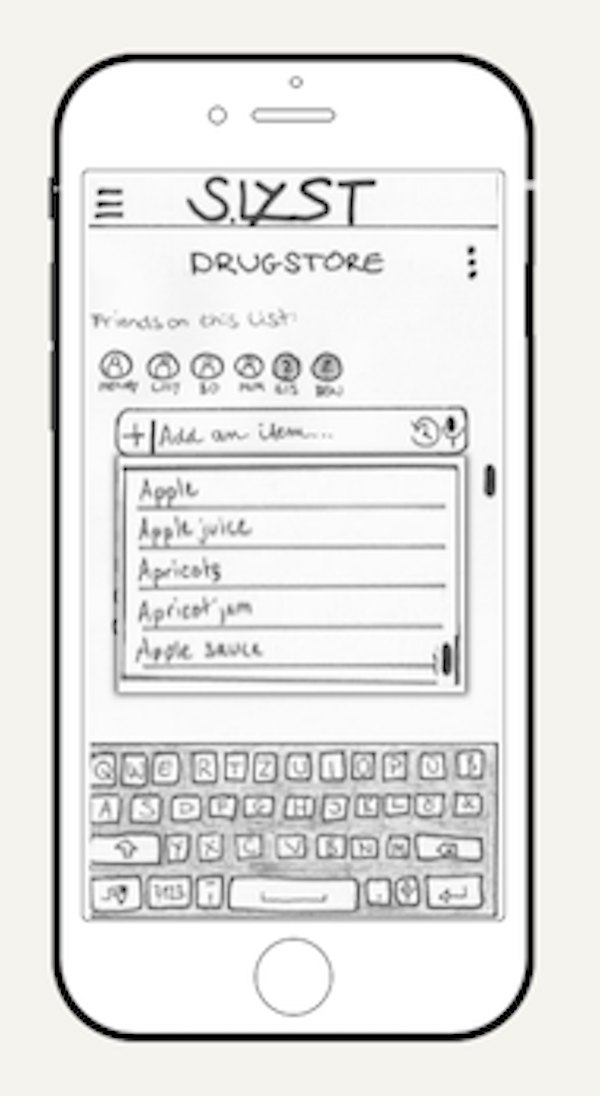 S.LYST
DRUGSTORE
Friends on this List:
BO MUM SIS BEN
+ Add an item...
Apple
Apple juice
Apricots
Apricot jam
Apple sauce
Q W E R T Z U I O P Ü ß
A S D F G H J K L Ö Ä
Y X C V B N M